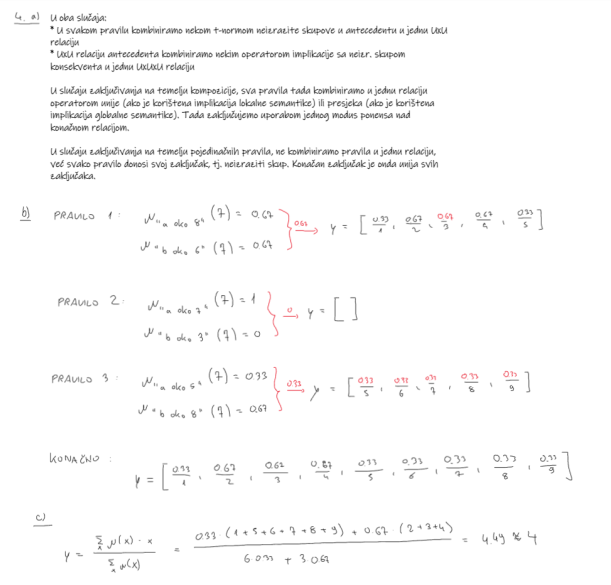 4. a) U oba slučaja:
* U svakom pravilu kombiniramo nekom t-normom neizrazite skupove u antecedentu u jednu UxU
relaciju
* UxU relaciju antecedenta kombiniramo nekim operatorom implikacije sa neizr. skupom
konsekventa u jednu UxUxU relaciju
U slučaju zaključivanja na temelju kompozicije, sva pravila tada kombiniramo u jednu relaciju
operatorom unije (ako je korištena implikacija lokalne semantike) ili presjeka (ako je korištena
implikacija globalne semantike). Tada zaključujemo uporabom jednog modus ponensa nad
konačnom relacijom.
U slučaju zaključivanja na temelju pojedinačnih pravila, ne kombiniramo pravila u jednu relaciju,
već svako pravilo donosi svoj zaključak, tj. neizraziti skup. Konačan zaključak je onda unija svih
zaključaka.
b) PRAVILO 1: μ"a oko 8" (7) = 0.67
μ"b oko 6" (7) = 0.67
0.67 → y = [ 0.33/1, 0.67/2, 0.67/3, 0.67/4, 0.33/5 ]
PRAVILO 2: μ"a oko 7" (7) = 1
μ"b oko 3" (7) = 0
0 → y = [ ]
PRAVILO 3: μ"a oko 5" (7) = 0.33
μ"b oko 8" (7) = 0.67
0.33 → y = [ 0.33/5, 0.33/6, 0.33/7, 0.33/8, 0.33/9 ]
KONAČNO: y = [ 0.33/1, 0.67/2, 0.67/3, 0.67/4, 0.33/5, 0.33/6, 0.33/7, 0.33/8, 0.33/9 ]
c) y = Σx μ(x) · x / Σx μ(x) = 0.33 · (1+5+6+7+8+9) + 0.67 · (2+3+4) / 6·0.33 + 3·0.67 = 4.49 ≈ 4